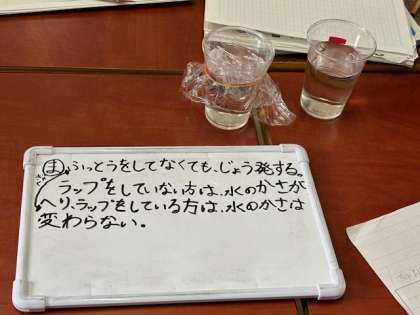 ま ふっとうをしてなくても、じょう発する。
ラップをしていない方は、水のかさが
へり、ラップをしている方は、水のかさは
変わらない。